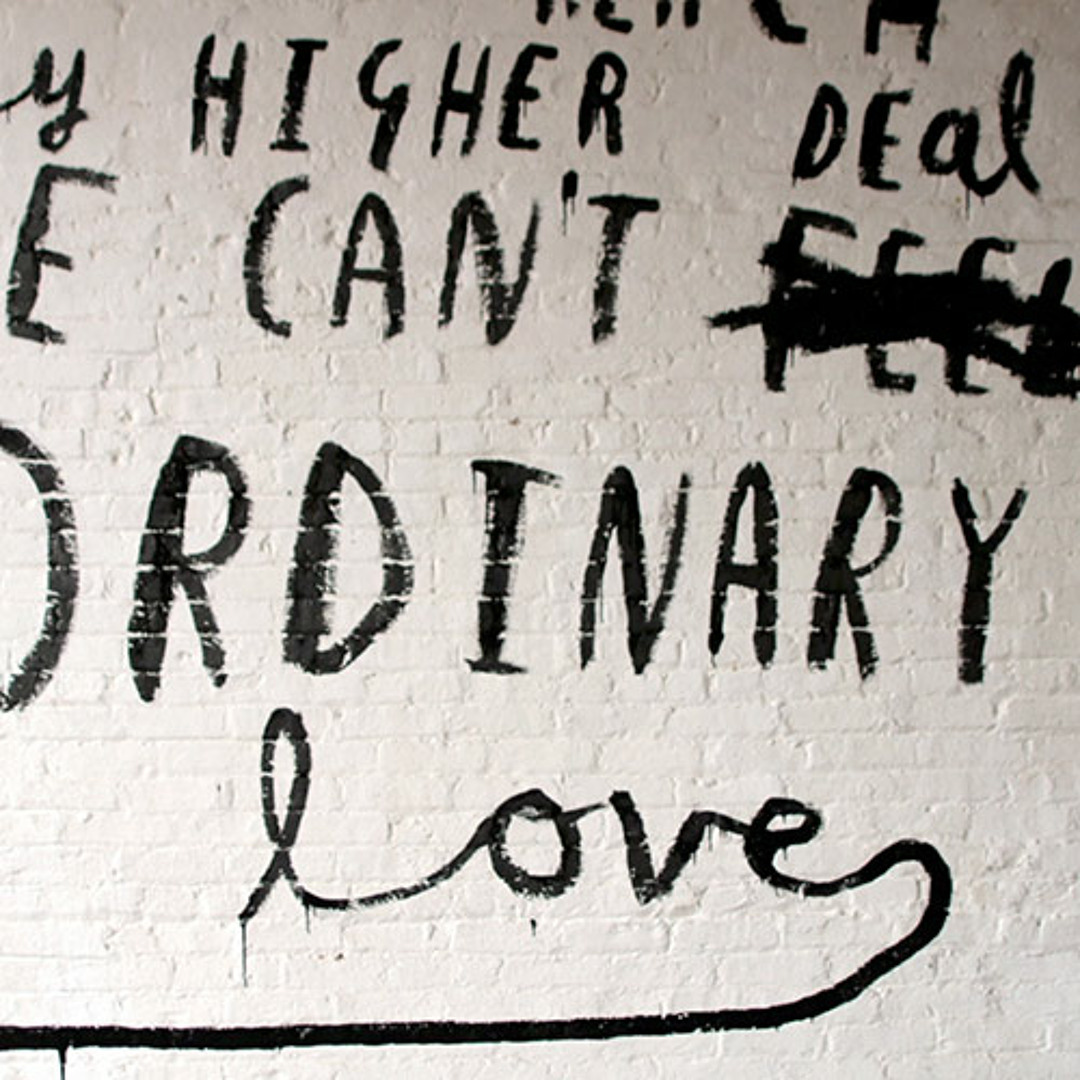 y HIGHER DEal
E CAN'T FEEL
ORDINARY
love